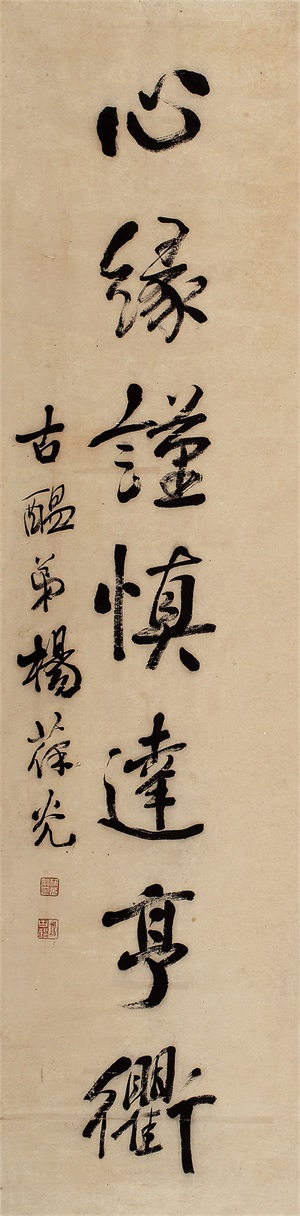 心緣謹慎達亨衢
古醞弟楊葆光